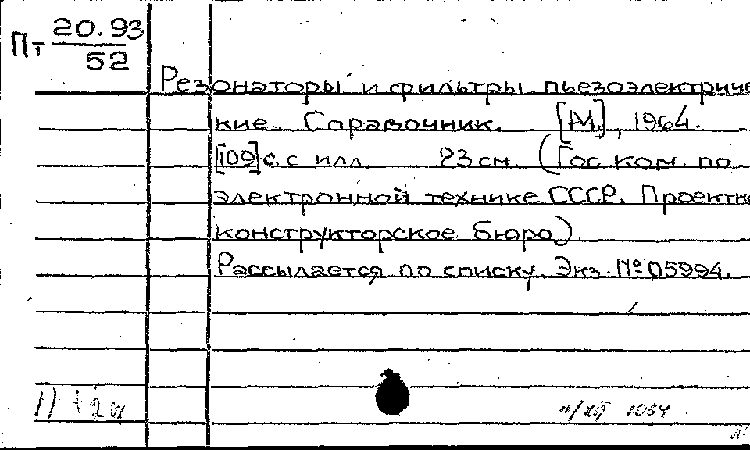 Пт 20.93
52
Резонаторы и фильтры пьезоэлектриче
кие. Справочник. [М.], 1964.
[109] с. с илл. 23 см. (Гос. ком. по
электронной технике СССР. Проектно
конструкторское бюро)
Рассылается по списку. Экз. № 05994.